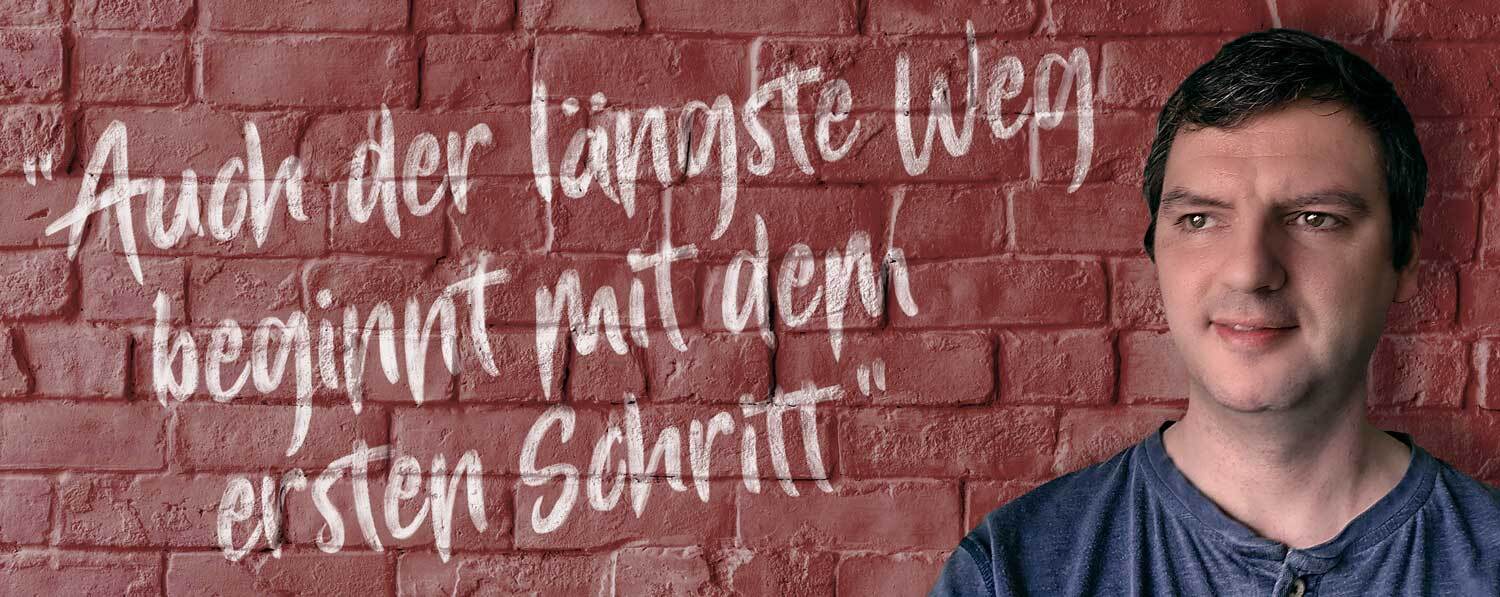 "Auch der längste Weg
beginnt mit dem
ersten Schritt"